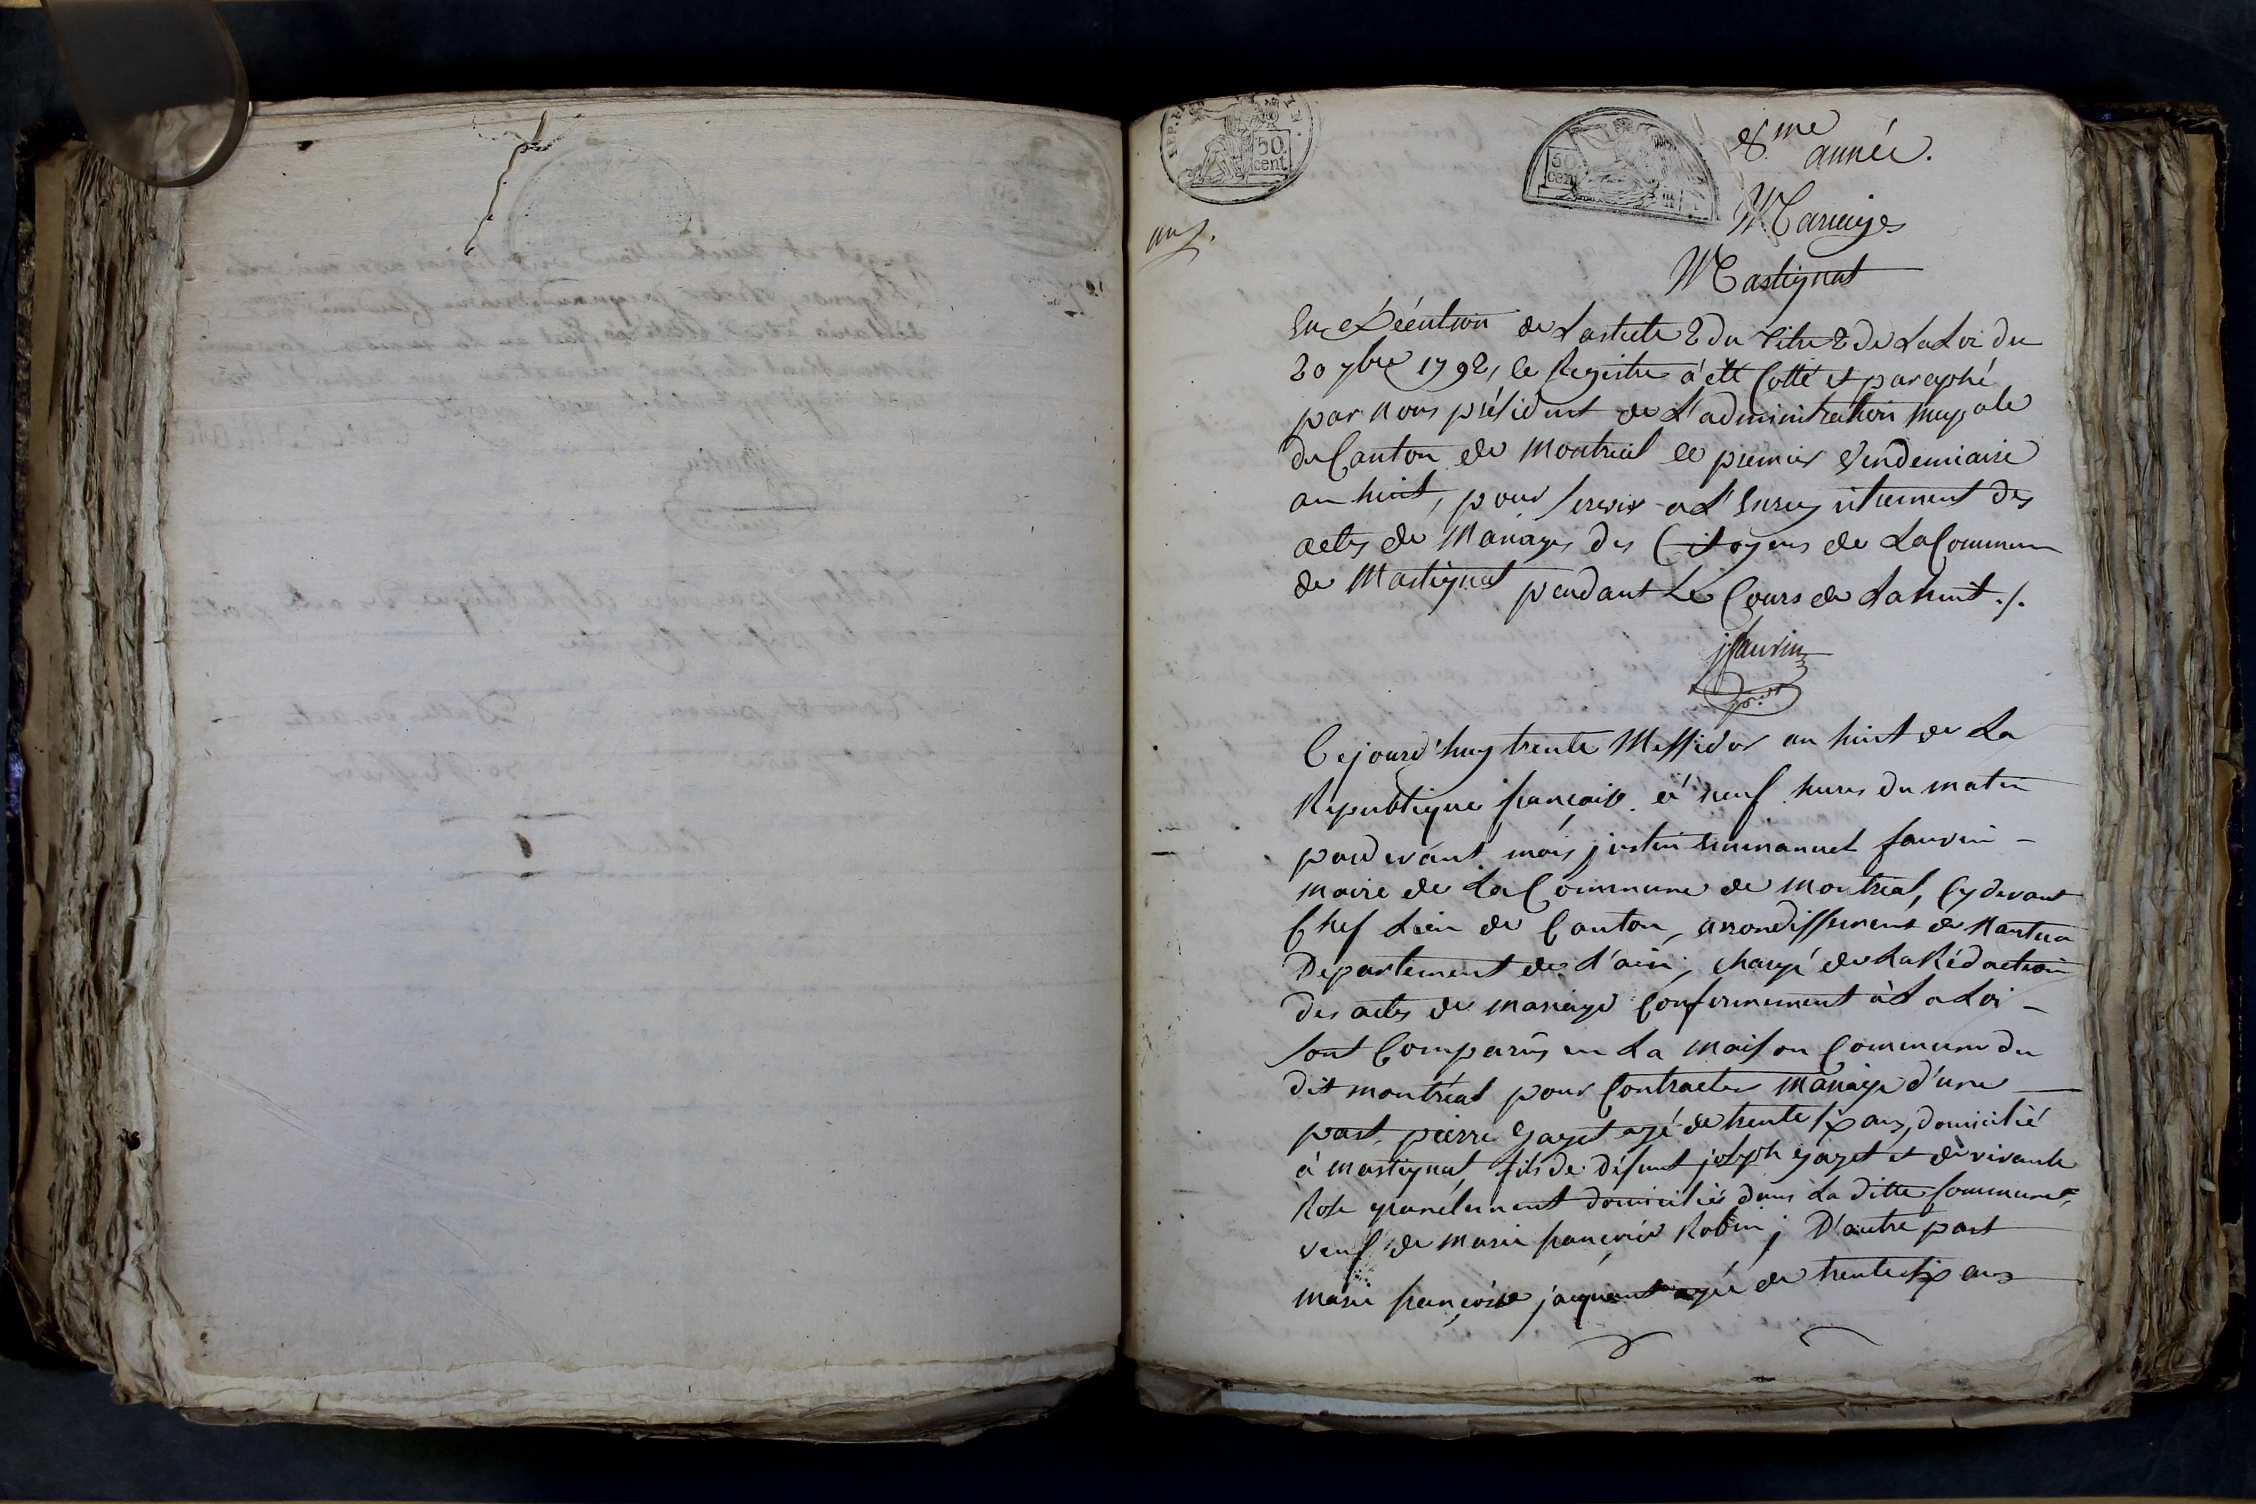 8.me
année.
Mariages
Martignat
50
cent
50
cent
En éxécution de Larticle 2 du titre 2 de La Loi du
20 7bre 1792, le Registre a été Cotté et paraphé
par nous président de L'administration mupale
du Canton de Montreal le premier Vendemiaire
an huit, pour servir a L'Enregitrement des
actes de Mariages des Citoyens de La Commune
de Martignat pendant Le Cours de Lan huit ./.
jfauvin
Cejourd'huy trente Messidor an huit de La
Republique française à neuf heures du matin
pardevant moi justin emmanuel fauvin -
maire de La Commune de Montreal, Cy devant
Chef Lieu de Canton, arrondissement de Nantua
Departement de L'ain, chargé de La Rédaction
des actes de mariage Conformement à La Loi -
sont Comparus en La maison Commune du
dit montréal pour Contracter Mariage d'une
part, pierre Gayet agé de trente six ans, domicilié
à martignat, fils de défunt joseph gayet et de vivante
Rose domiciliés dans La ditte Commune,
veuf de marie françoise Robin ; D'autre part
marie françoise agée de trente six ans